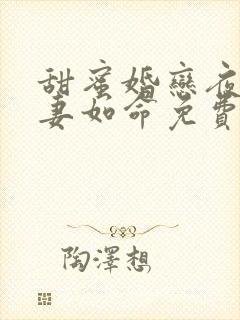 甜蜜婚戀夜
妻如命免費
陶澤想